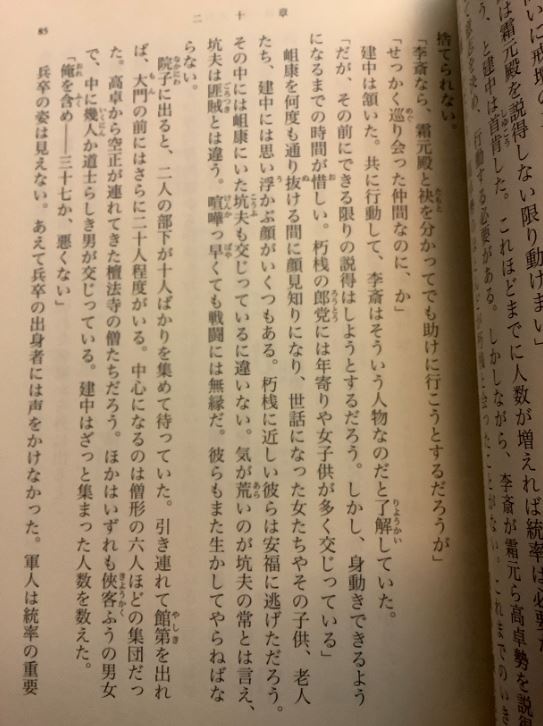 は霜元殿を説得しない限り動けまい」
、と建中は首肯した。これほどまでに人数が増えれば統率は必要
行動する必要がある。しかしながら、李斎が霜元ら高卓勢を説得
会ったことがない。これまでのいき
二十章
捨てられない。
「李斎なら、霜元殿と袂を分かってでも助けに行こうとするだろうが」
「せっかく巡り会った仲間なのに、か」
建中は頷いた。共に行動して、李斎はそういう人物なのだと了解していた。
「だが、その前にできる限りの説得はしようとするだろう。しかし、身動きできるよう
になるまでの時間が惜しい。朽桟の郎党には年寄りや女子供が多く交じっている」
岨康を何度も通り抜ける間に顔見知りになり、世話になった女たちやその子供、老人
たち、建中には思い浮かぶ顔がいくつもある。朽桟に近しい彼らは安福に逃げただろう。
その中には岨康にいた坑夫も交じっているに違いない。気が荒いのが坑夫の常とは言え、
坑夫は匪賊とは違う。喧嘩っ早くても戦闘には無縁だ。彼らもまた生かしてやらねばな
らない。
院子に出ると、二人の部下が十人ばかりを集めて待っていた。引き連れて館第を出れ
ば、大門の前にはさらに二十人程度がいる。中心になるのは僧形の六人ほどの集団だっ
た。高卓から空正が連れてきた檀法寺の僧たちだろう。ほかはいずれも俠客ふうの男女
で、中に幾人か道士らしき男が交じっている。建中はざっと集まった人数を数えた。
「俺を含め――三十七か、悪くない」
兵卒の姿は見えない。あえて兵卒の出身者には声をかけなかった。軍人は統率の重要
85